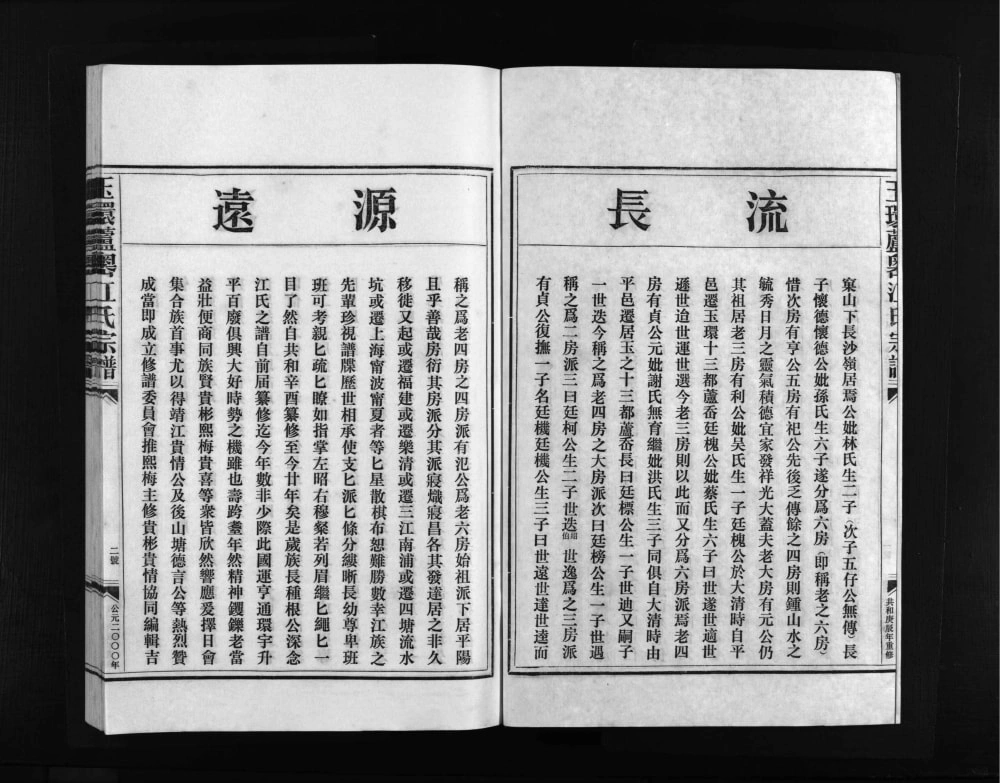 玉環蘆岙江氏宗譜
共和庚辰年重修
流長
窠山下長沙嶺居焉公妣林氏生二子（次子五仔公無傳）長
子懷德懷德公妣孫氏生六子遂分爲六房（即稱老之六房）
惜次房有亨公五房有祀公先後乏傳餘之四房則鍾山水之
毓秀日月之靈氣積德宜家發祥光大蓋夫老大房有元公仍
其祖居老三房有利公妣吳氏生一子廷槐公於大清時自平
邑遷玉環十三都蘆岙廷槐公妣蔡氏生六子曰世遂世適世
遜世迨世運世選今老三房則以此而又分爲六房派焉老四
房有貞公元妣謝氏無育繼妣洪氏生三子同俱自大清時由
平邑遷居玉之十三都蘆岙長曰廷標公生一子世迪又嗣子
一世迭今稱之爲老四房之大房派次曰廷榜公生一子世遇
稱之爲二房派三曰廷柯公生二子世迭紹伯世逸爲之三房派
有貞公復撫一子名廷機廷機公生三子曰世遠世達世逹而
源遠
稱之爲老四房之四房派有犯公爲老六房始祖派下居平陽
且乎善哉房衍其房派分其派寢熾寢昌各其發達居之非久
移徙又起或遷福建或遷樂清或遷三江南浦或遷四塘流水
坑或遷上海甯波甯夏者等匕星散棋布恕難勝數幸江族之
先輩珍視譜牒歷世相承使支匕派匕條分縷晰長幼尊卑班
班可考親匕疏匕瞭如指掌左昭右穆粲若列眉繼匕繩匕一
目了然自共和辛酉纂修至今廿年矣是歲族長種根公深念
江氏之譜自前屆纂修迄今年數非少際此國運亨通環宇升
平百廢俱興大好時勢之機雖也壽跨耋年然精神钁鑠老當
益壯便商同族賢貴彬熙梅貴喜等衆皆欣然響應爰擇日會
集合族首事尤以得靖江貴情公及後山塘德言公等熱烈贊
成當即成立修譜委員會推熙梅主修貴彬貴情協同編輯吉
玉環蘆岙江氏宗譜
二號
公元二〇〇〇年